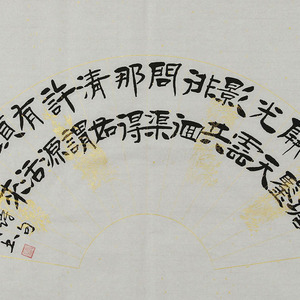 開天
光雲
影共
徘徊
問渠
那得
清如
許謂
有源
頭活
來
句